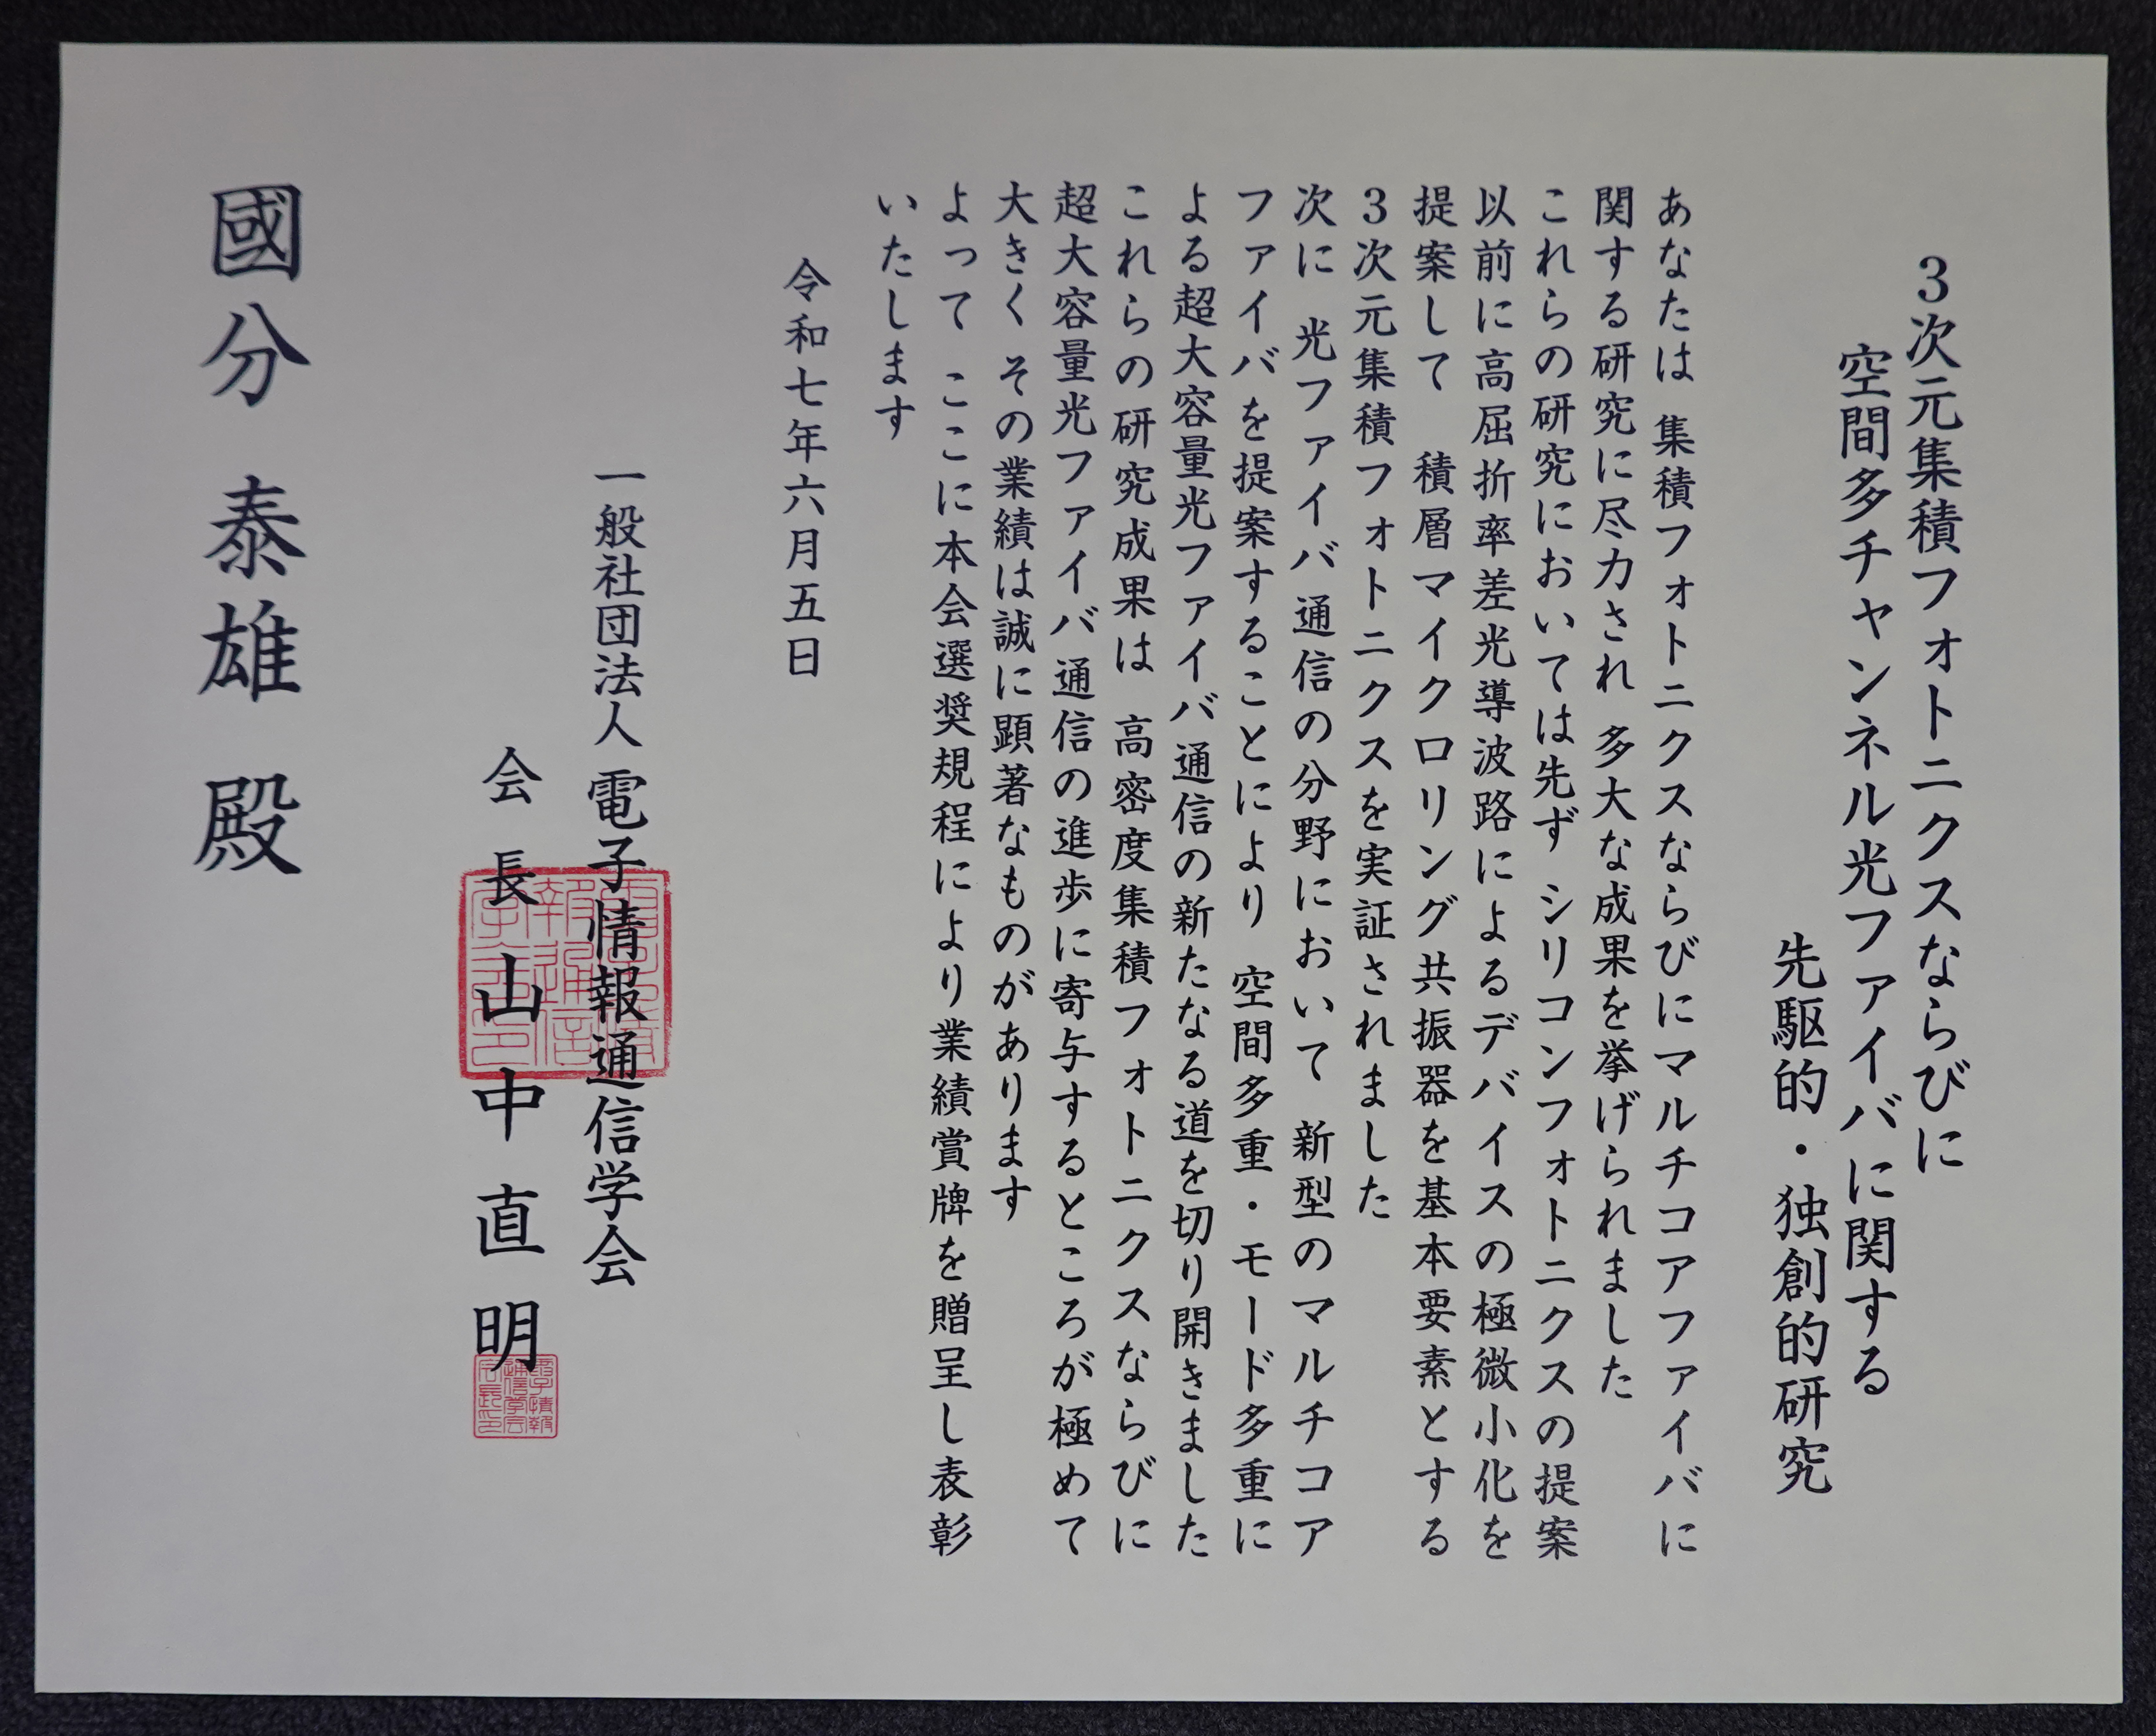 3次元集積フォトニクスならびに
空間多チャンネル光ファイバに関する
先駆的・独創的研究
あなたは 集積フォトニクスならびにマルチコアファイバに
関する研究に尽力され 多大な成果を挙げられました
これらの研究においては先ず シリコンフォトニクスの提案
以前に高屈折率差光導波路によるデバイスの極微小化を
提案して 積層マイクロリング共振器を基本要素とする
3次元集積フォトニクスを実証されました
次に 光ファイバ通信の分野において 新型のマルチコア
ファイバを提案することにより 空間多重・モード多重に
よる超大容量光ファイバ通信の新たなる道を切り開きました
これらの研究成果は 高密度集積フォトニクスならびに
超大容量光ファイバ通信の進歩に寄与するところが極めて
大きく その業績は誠に顕著なものがあります
よって ここに本会選奨規程により業績賞牌を贈呈し表彰
いたします
令和七年六月五日
一般社団法人 電子情報通信学会
会長 山中直明
國分 泰雄 殿